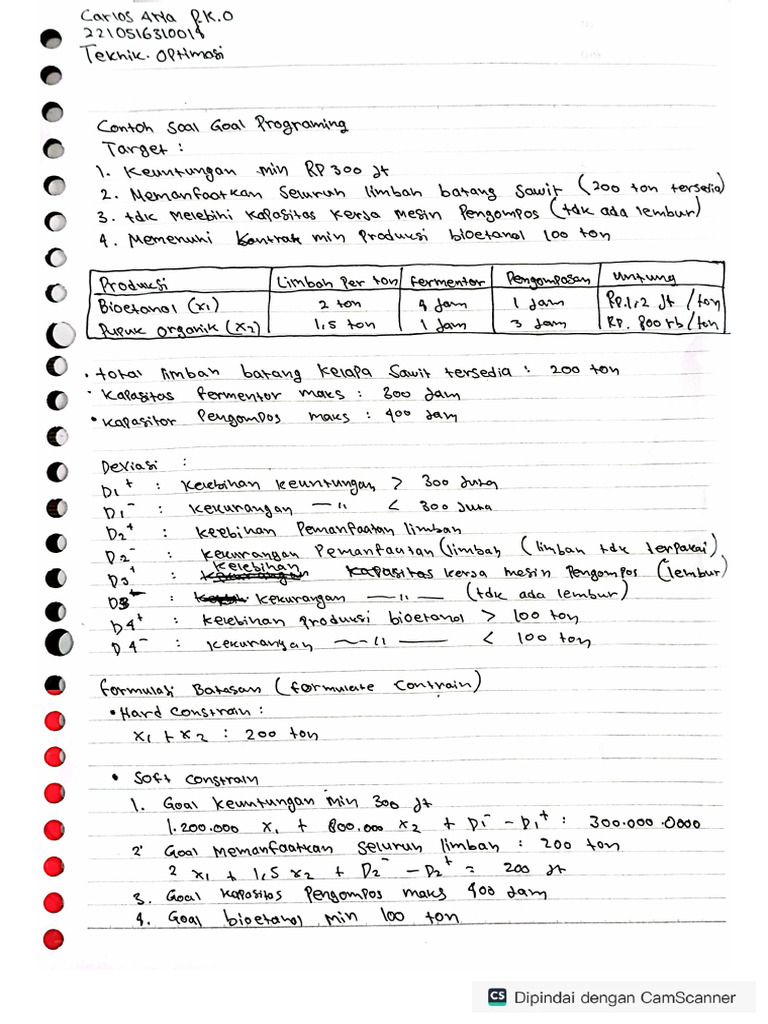 Carlos Arya P.K.O
Teknik Optimasi
Contoh Soal Goal Programing
Target :
1. Keuntungan min RP 300 jt
2. Memanfaatkan Seluruh limbah batang Sawit (200 ton tersedia)
3. tdk melebihi kapasitas kerja mesin Pengompos (tdk ada lembur)
4. Memenuhi kontrak min produksi bioetanol 100 ton
Produksi Limbah Per ton fermentor Pengomposan untung
Bioetanol (x1) 2 ton 4 Jam 1 Jam Rp.1,2 Jt /ton
Pupuk organik (x2) 1,5 ton 1 Jam 3 Jam RP. 800 rb/ton
• total limbah batang kelapa Sawit tersedia : 200 ton
• Kapasitas fermentor maks : 300 Jam
• Kapasitor Pengompos maks : 400 Jam
Deviasi :
D1+ : kelebihan keuntungan > 300 Juta
D1- : kekurangan —"— < 300 Juta
D2+ : keebihan Pemanfaatan limbah
D2- : kekurangan Pemanfaatan limbah (limbah tdk terpakai)
D3+ : kelebihan kapasitas kerja mesin Pengompos (lembur)
D3- : kekurangan —"— (tdk ada lembur)
D4+ : kelebihan Produksi bioetanol > 100 ton
D4- : kekurangan —"— < 100 ton
Formulasi Batasan (formulate Contrain)
• Hard Constrain :
x1 + x2 : 200 ton
• Soft Constrain
1. Goal keuntungan min 300 jt
1.200.000 x1 + 800.000 x2 + D1- - D1+ : 300.000.0000
2. Goal Memanfaatkan Seluruh limbah : 200 ton
2 x1 + 1,5 x2 + D2- - D2+ = 200 jt
3. Goal Kapasitas Pengompos maks 400 Jam
4. Goal bioetanol min 100 ton
CS Dipindai dengan CamScanner